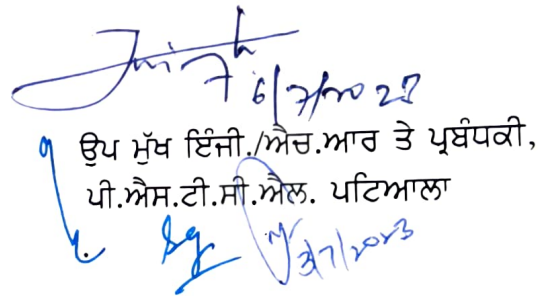 6/7/2023
ਉਪ ਮੁੱਖ ਇੰਜੀ./ਐਚ.ਆਰ ਤੇ ਪ੍ਰਬੰਧਕੀ,
ਪੀ.ਐਸ.ਟੀ.ਸੀ.ਐਲ. ਪਟਿਆਲਾ
3/7/2023